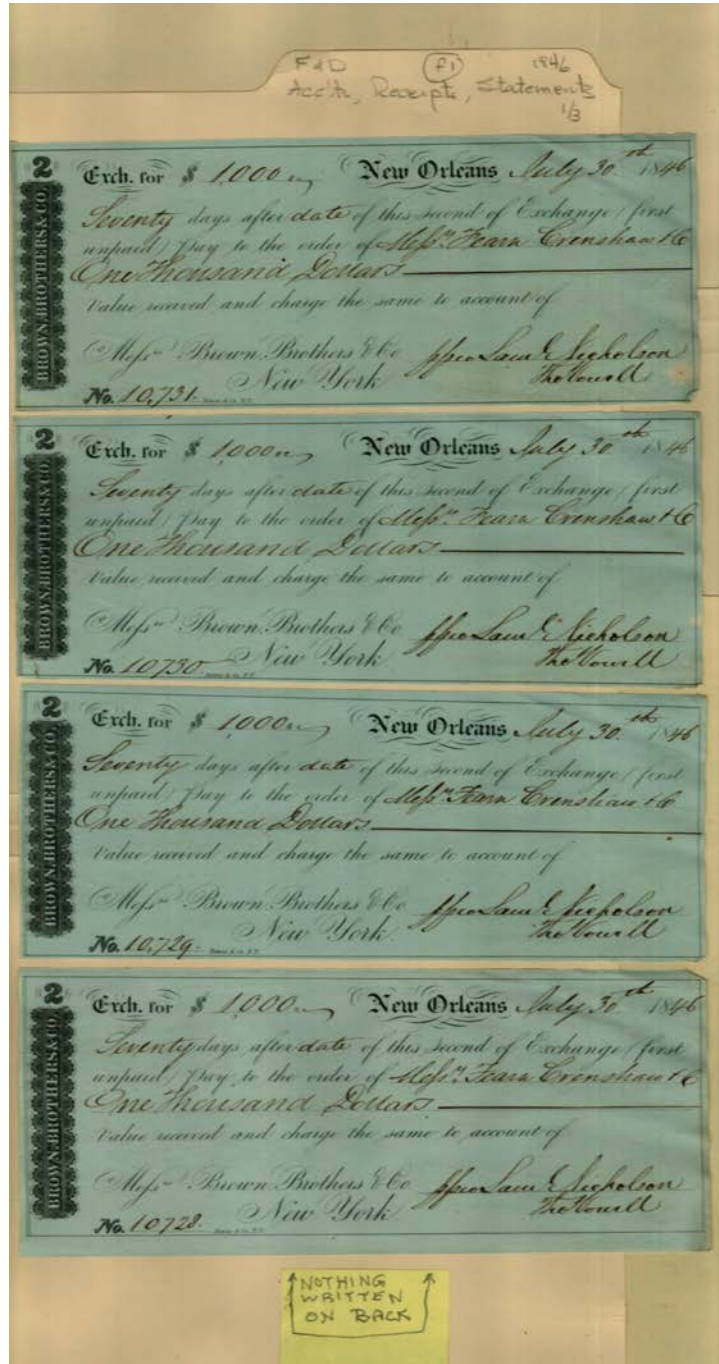 F&D (f1) 1846
Acc'ts, Receipts, Statements
1/3
2
BROWN, BROTHERS & CO.
Exch. for $ 1,000 New Orleans July 30th 1846
Seventy days after date of this second of Exchange (first
unpaid) Pay to the order of Messrs. Fearn Crenshaw & Co
One Thousand Dollars
Value received and charge the same to account of
Messrs Brown Brothers & Co ppro Saml Nicholson
New York Tho Vowell
No. 10,731
2
BROWN, BROTHERS & CO.
Exch. for $ 1,000 New Orleans July 30th 1846
Seventy days after date of this second of Exchange (first
unpaid) Pay to the order of Messrs. Fearn Crenshaw & Co
One Thousand Dollars
Value received and charge the same to account of
Messrs Brown Brothers & Co ppro Saml Nicholson
New York Tho Vowell
No. 10,730
2
BROWN, BROTHERS & CO.
Exch. for $ 1,000 New Orleans July 30th 1846
Seventy days after date of this second of Exchange (first
unpaid) Pay to the order of Messrs. Fearn Crenshaw & Co
One Thousand Dollars
Value received and charge the same to account of
Messrs Brown Brothers & Co ppro Saml Nicholson
New York Tho Vowell
No. 10,729
2
BROWN, BROTHERS & CO.
Exch. for $ 1,000 New Orleans July 30th 1846
Seventy days after date of this second of Exchange (first
unpaid) Pay to the order of Messrs. Fearn Crenshaw & Co
One Thousand Dollars
Value received and charge the same to account of
Messrs Brown Brothers & Co ppro Saml Nicholson
New York Tho Vowell
No. 10728
NOTHING
WRITTEN
ON BACK